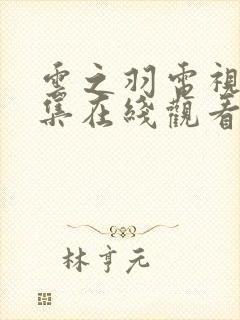 雲之羽電視
集在綫觀看
林亨元